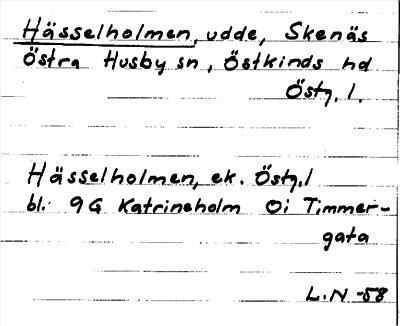 Hässelholmen, udde, Skenäs
Östra Husby sn, Östkinds hd
Östg. l.
Hässelholmen, ek. Östg. l
bl. 9G Katrineholm Oi Timmer-
gata
L.N -58